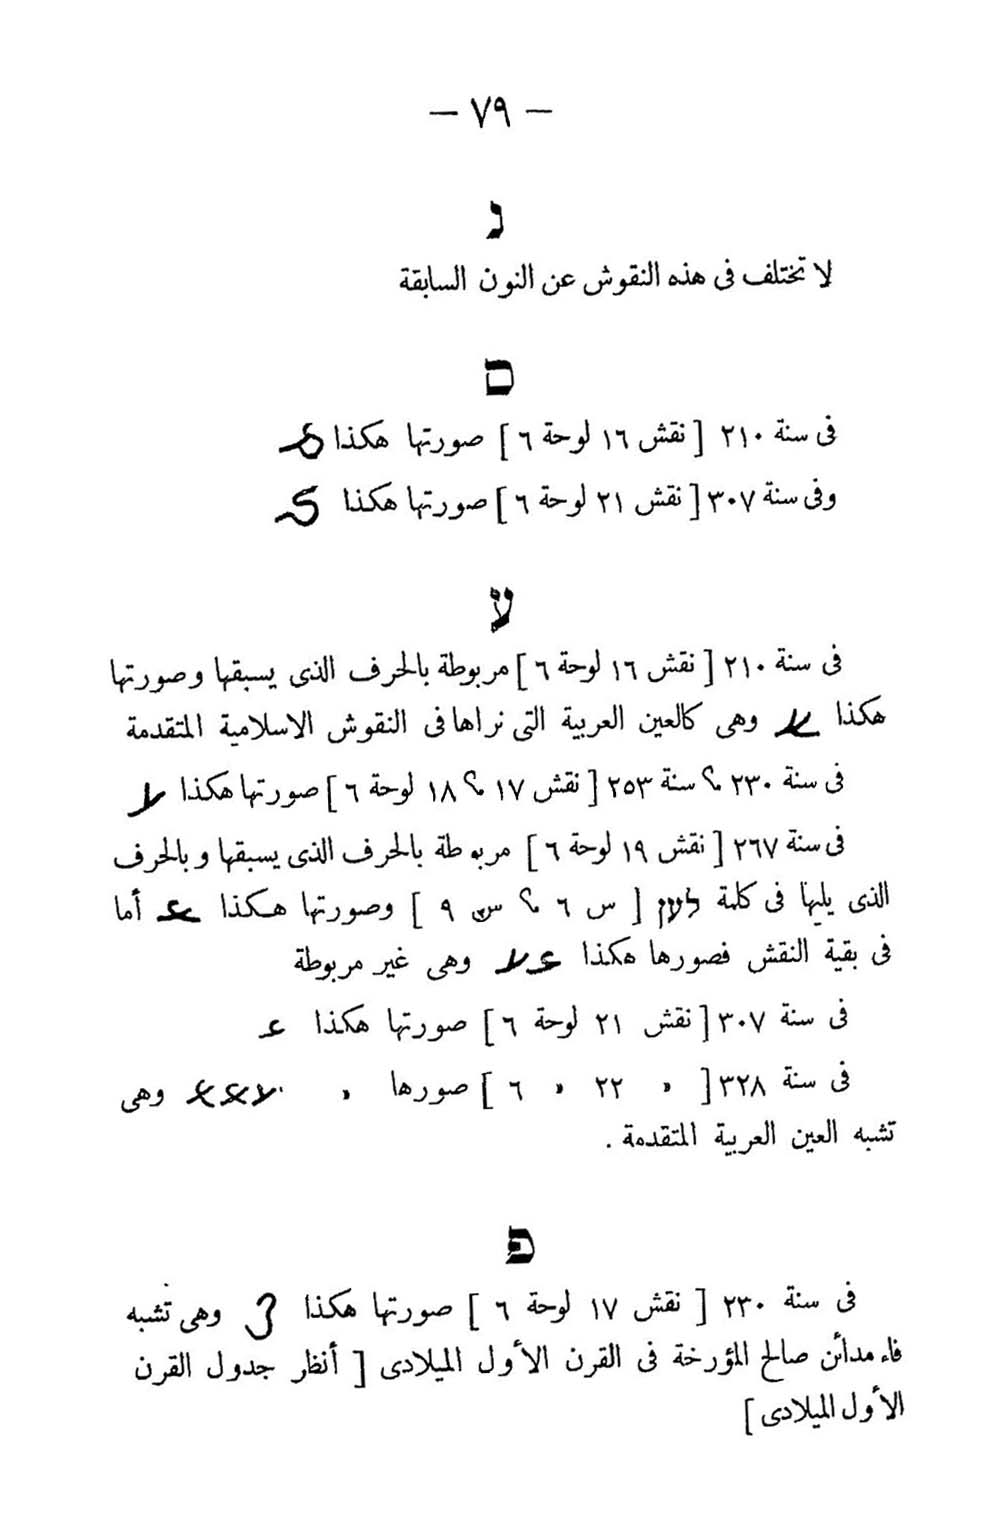 — ٧٩ —
נ
لا تختلف فى هذه النقوش عن النون السابقة
ס
فى سنة ٢١٠ [ نقش ١٦ لوحة ٦ ] صورتها هكذا
وفى سنة ٣٠٧ [ نقش ٢١ لوحة ٦ ] صورتها هكذا
ע
فى سنة ٢١٠ [ نقش ١٦ لوحة ٦ ] مربوطة بالحرف الذى يسبقها وصورتها
هكذا وهى كالعين العربية التى نراها فى النقوش الاسلامية المتقدمة
فى سنة ٢٣٠ ؟ سنة ٢٥٣ [ نقش ١٧ ؟ ١٨ لوحة ٦ ] صورتها هكذا
فى سنة ٢٦٧ [ نقش ١٩ لوحة ٦ ] مربوطة بالحرف الذى يسبقها وبالحرف
الذى يليها فى كلمة [ س ٦ ؟ س ٩ ] وصورتها هكذا أما
فى بقية النقش فصورها هكذا وهى غير مربوطة
فى سنة ٣٠٧ [ نقش ٢١ لوحة ٦ ] صورتها هكذا
فى سنة ٣٢٨ [ » ٢٢ » ٦ ] صورها » وهى
تشبه العين العربية المتقدمة .
פּ
فى سنة ٢٣٠ [ نقش ١٧ لوحة ٦ ] صورتها هكذا وهى تشبه
فاء مدائن صالح المؤرخة فى القرن الأول الميلادى [ أنظر جدول القرن
الأول الميلادى ]